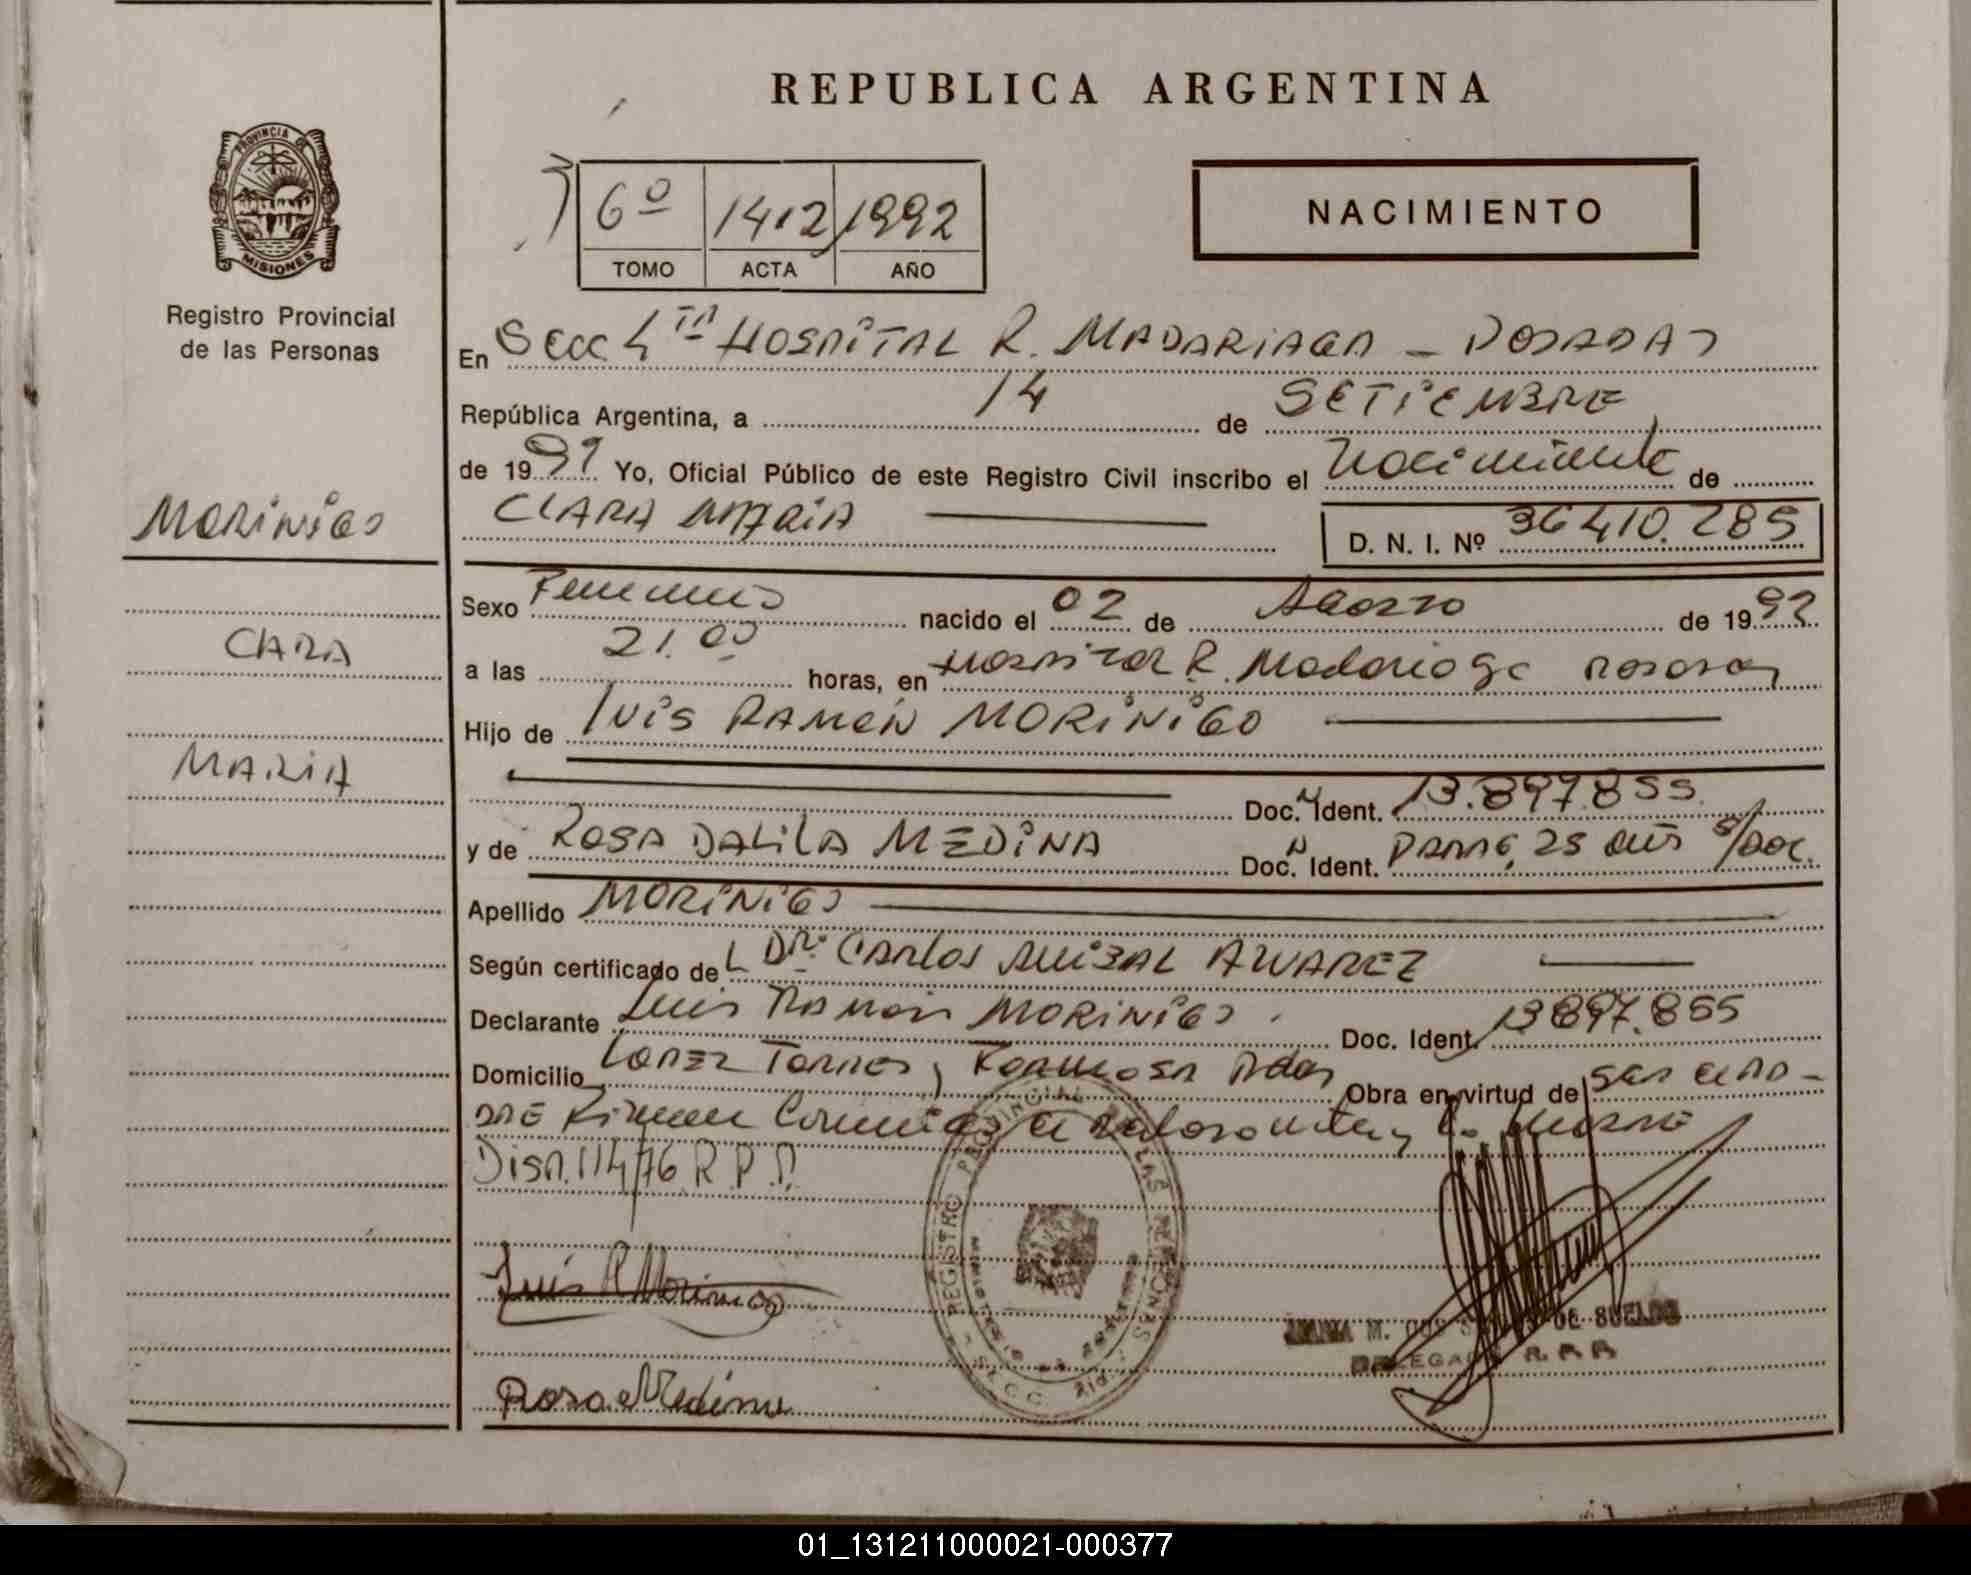 REPUBLICA ARGENTINA
PROVINCIA DE
MISIONES
Registro Provincial
de las Personas
6º 1412 1992
TOMO ACTA AÑO
NACIMIENTO
En Secc 4ta HOSPITAL R. MADARIAGA - POSADAS
República Argentina, a 14 de SETIEMBRE
de 19 92 Yo, Oficial Público de este Registro Civil inscribo el Nacimiento de
MORINIGO
CLARA MARIA
D. N. I. Nº 36410.285
Sexo Femenino nacido el 02 de AGOSTO de 19 92
CLARA
a las 21.00 horas, en HOSPITAL R. Madariaga POSADAS
Hijo de LUIS RAMON MORINIGO
MARIA
Doc. N Ident. 13.897.855
y de ROSA DALILA MEDINA Doc. N Ident. PARAG, 25 años S/DOC.
Apellido MORINIGO
Según certificado de L DR. CARLOS ANIBAL ALVAREZ
Declarante Luis RAMON MORINIGO. Doc. Ident. 13897.855
Domicilio LOPEZ TORRES y FORMOSA Pdas Obra en virtud de ser el PA-
DRE Firman la MADRE
DISP. 114/76 R.P.P.
Luis R Morinigo
REGISTRO PROVINCIAL DE LAS PERSONAS
DE SUELDO
DELEGADA R. P. P.
Rosa Medina
01_131211000021-000377